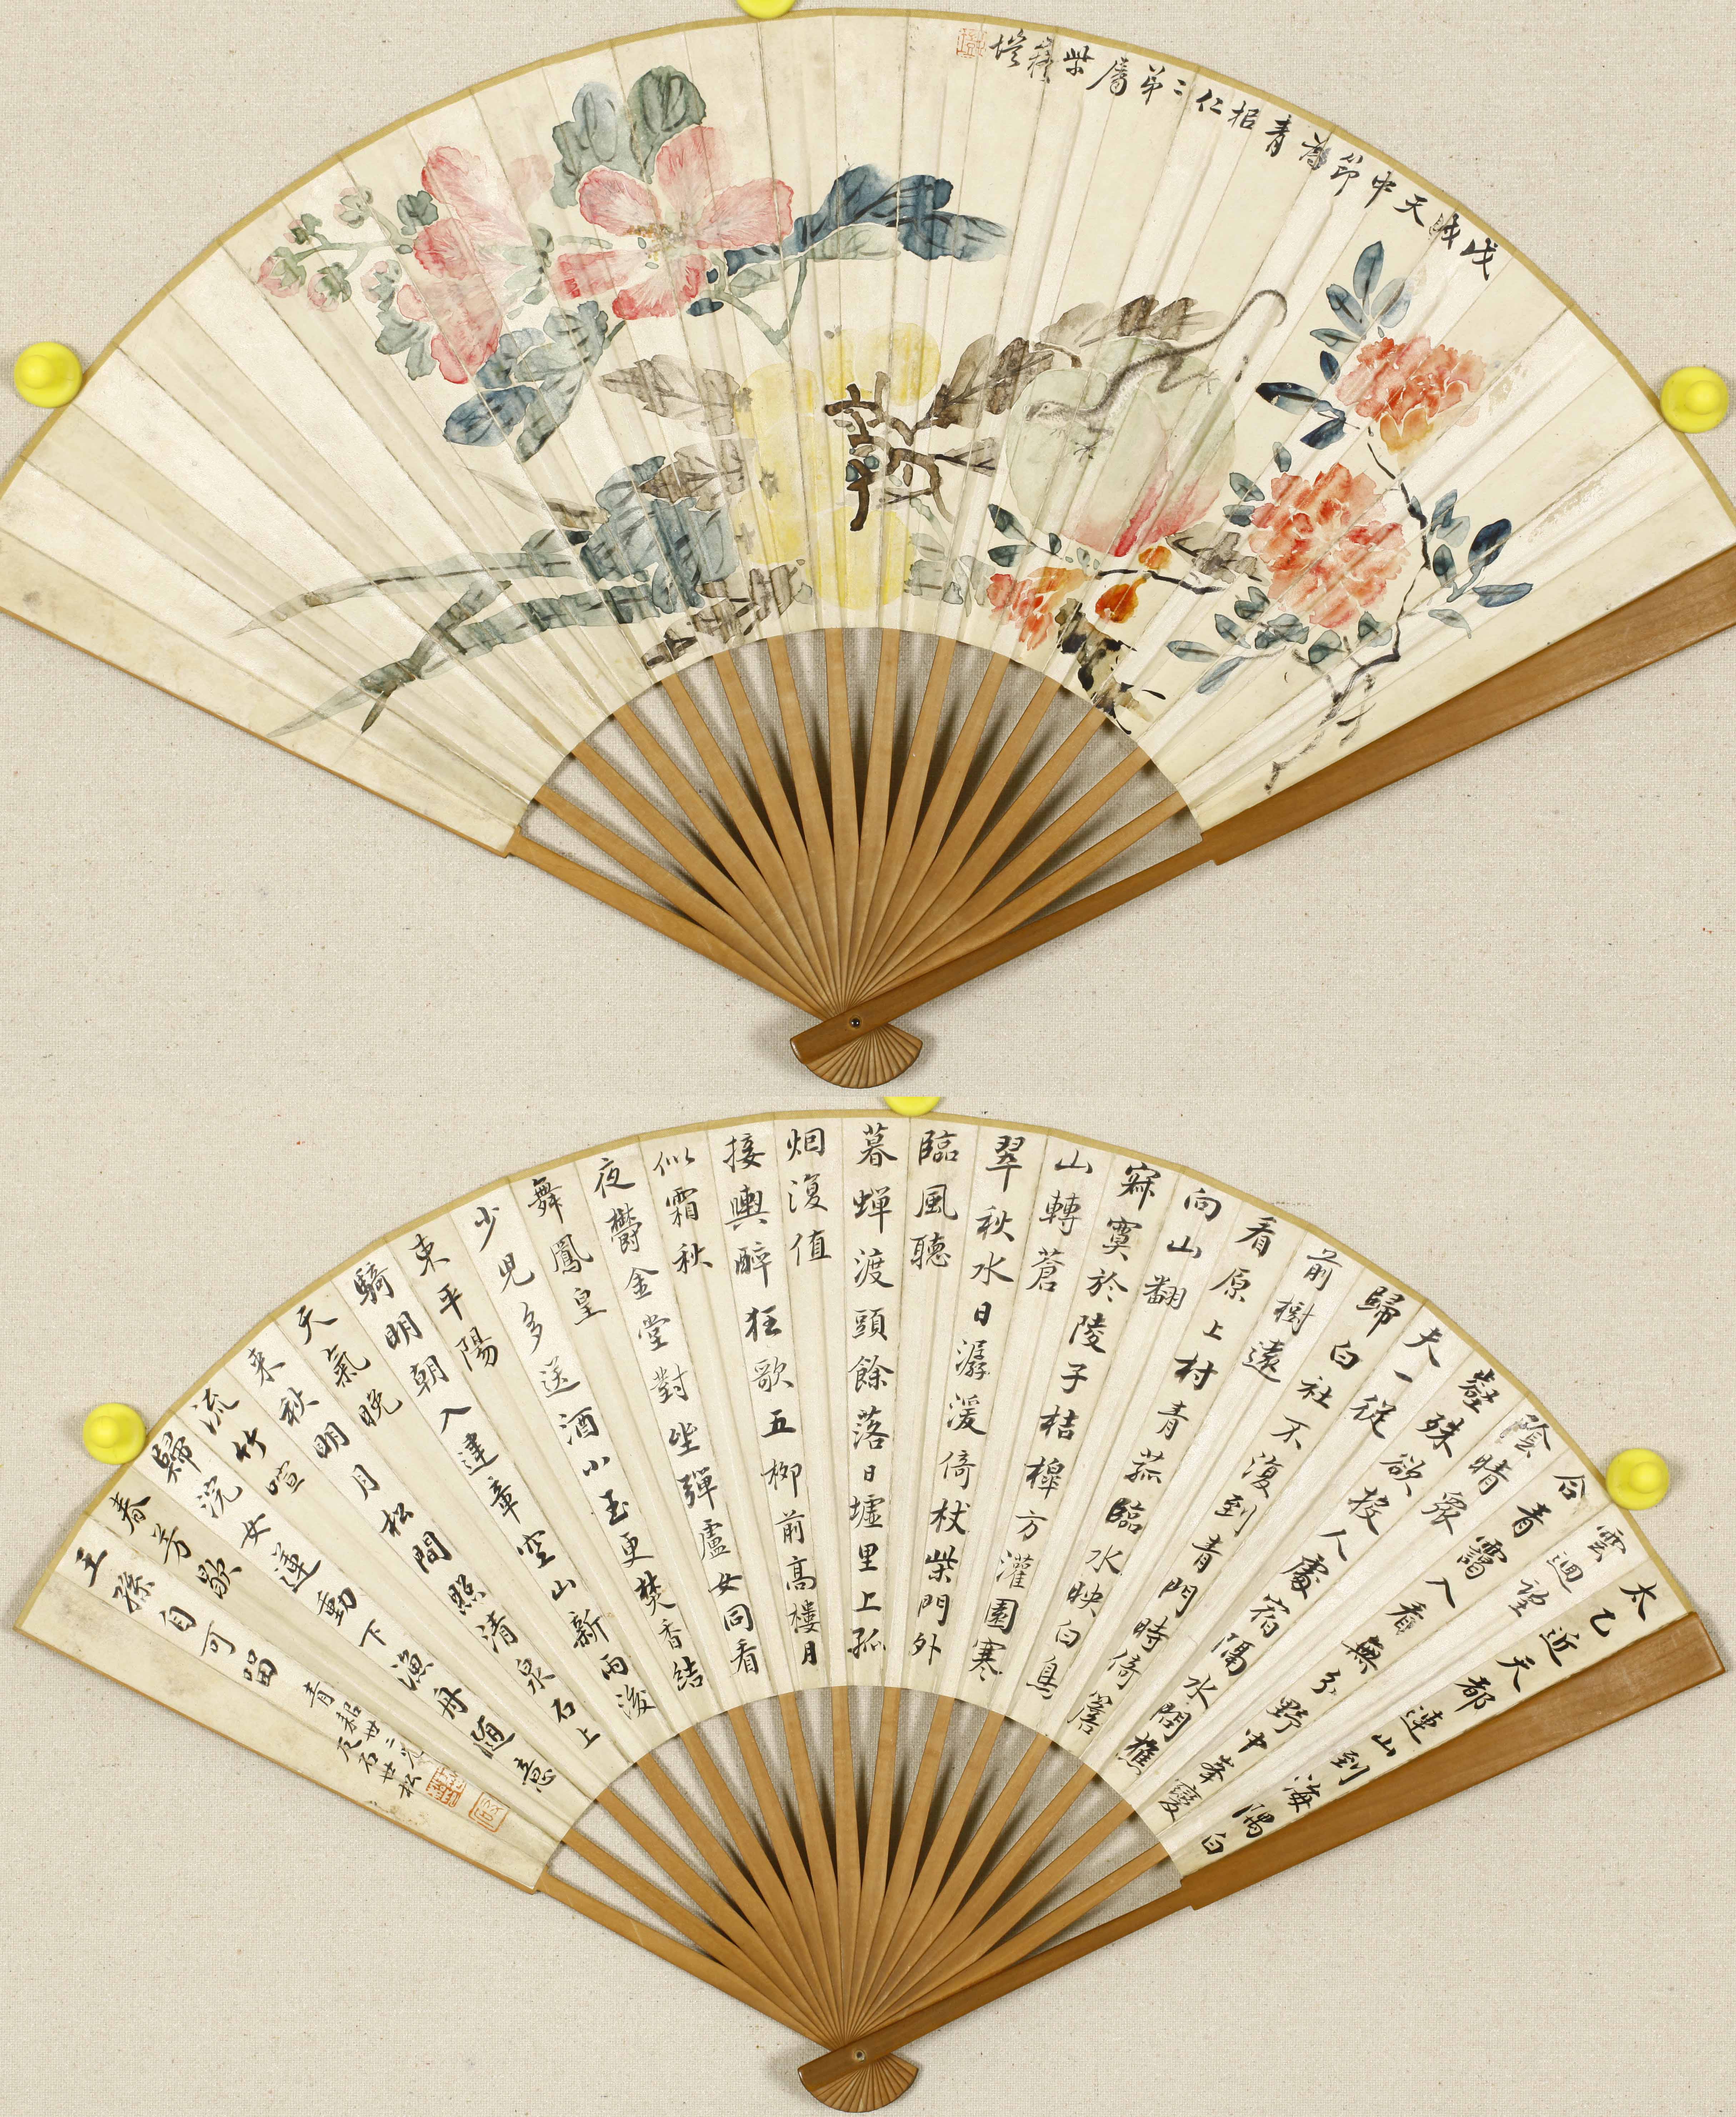 戊戌天中節為青裾仁二弟屬
太乙近天都連山到海隅白
雲迴望
合青靄入看無分野中峯變
陰晴衆
壑殊欲投人處宿隔水問樵
夫一從
歸白社不復到青門時倚簷
前樹遠
看原上村青菰臨水映白鳥
向山翻
寂寞於陵子桔槔方灌園寒
山轉蒼
翠秋水日潺湲倚杖柴門外
臨風聽
暮蟬渡頭餘落日墟里上孤
烟復值
接輿醉狂歌五柳前高樓月
似霜秋
夜鬱金堂對坐彈盧女同看
舞鳳皇
少兒多送酒小玉更焚香結
束平陽
騎明朝入建章空山新雨後
天氣晚
來秋明月松間照清泉石上
流竹喧
歸浣女蓮動下漁舟隨意
春芳歇
王孫自可留
青裾世二兄